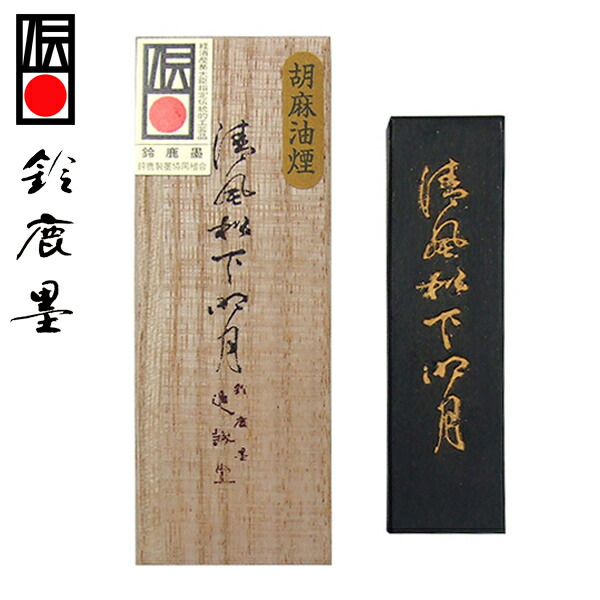 伝
鈴鹿墨
伝
経済産業大臣指定伝統的工芸品
鈴鹿墨
鈴鹿製墨協同組合
胡麻油煙
清風松下明月
鈴鹿墨
進誠堂
清風松下明月